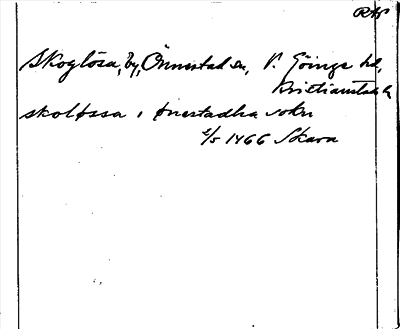 RAP
Skoglösa, by, Önnestad sn, V. Göinge hd,
Kristianstads l.
skoløssa i ønestadha sokn
2/5 1466 Skara